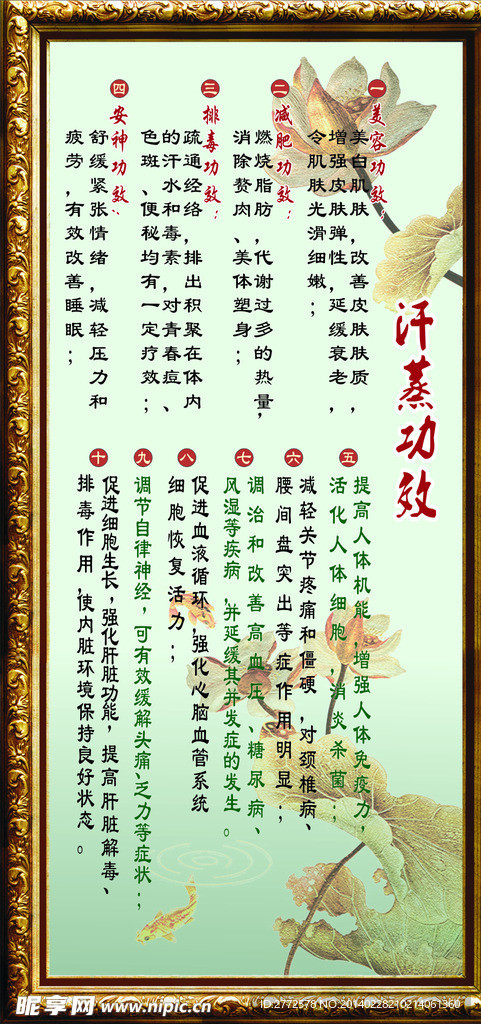 汗蒸功效
一
美容功效：
美白肌肤，改善皮肤肤质，
增强皮肤弹性，延缓衰老，
令肌肤光滑细嫩；
二
减肥功效：
燃烧脂肪，代谢过多的热量，
消除赘肉、美体塑身；
三
排毒功效：
疏通经络，排出积聚在体内
的汗水和毒素，对青春痘、
色斑、便秘均有一定疗效；
四
安神功效、
舒缓紧张情绪，减轻压力和
疲劳，有效改善睡眠；
五
提高人体机能，增强人体免疫力，
活化人体细胞，消炎杀菌；
六
减轻关节疼痛和僵硬，对颈椎病、
腰间盘突出等症作用明显；
七
调治和改善高血压、糖尿病、
风湿等疾病，并延缓其并发症的发生。
八
促进血液循环，强化心脑血管系统
细胞恢复活力；
九
调节自律神经，可有效缓解头痛、乏力等症状；
十
促进细胞生长，强化肝脏功能，提高肝脏解毒、
排毒作用，使内脏环境保持良好状态。
昵享网 www.nipic.cn
ID:2772578 NO:20140228210214061360